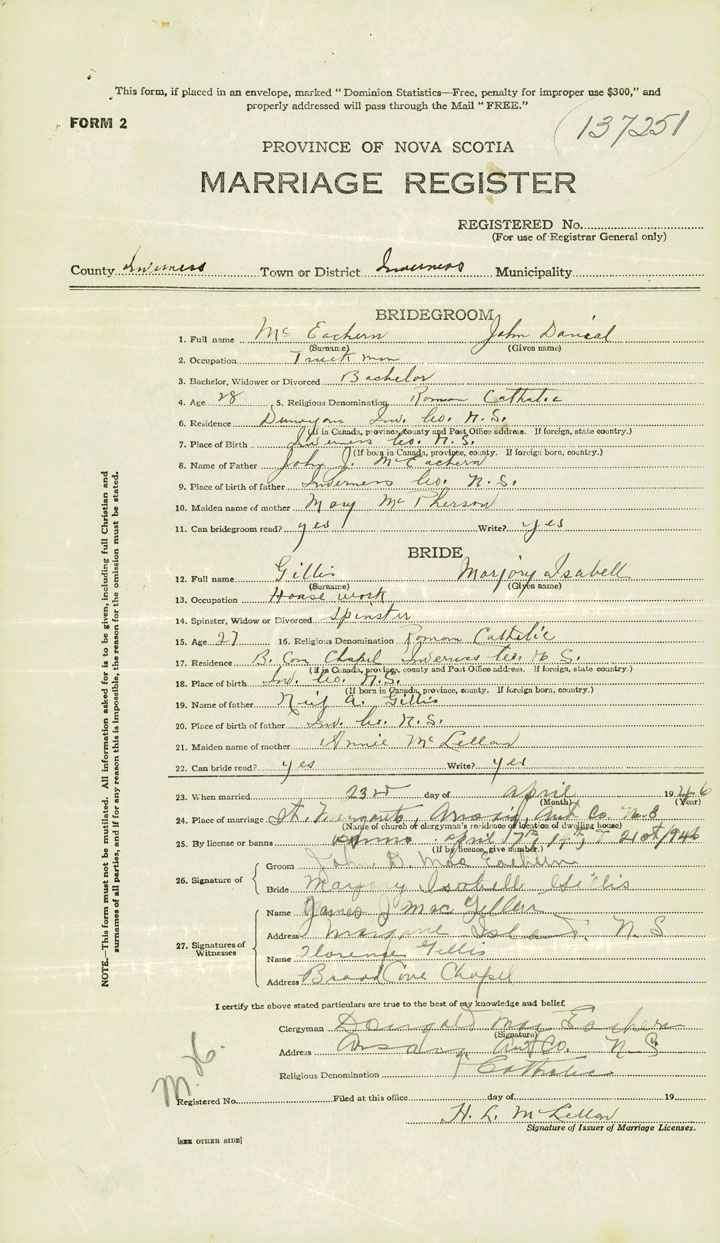 This form, if placed in an envelope, marked "Dominion Statistics—Free, penalty for improper use $300," and
properly addressed will pass through the Mail "FREE."
FORM 2
137251
PROVINCE OF NOVA SCOTIA
MARRIAGE REGISTER
REGISTERED No.
(For use of Registrar General only)
County Inverness Town or District Inverness Municipality
BRIDEGROOM
1. Full name McEachern John Daniel
(Surname) (Given name)
2. Occupation Truckman
3. Bachelor, Widower or Divorced Bachelor
4. Age 28 5. Religious Denomination Roman Catholic
6. Residence Dunvegan Inv. Co. N.S.
(If in Canada, province, county and Post Office address. If foreign, state country.)
7. Place of Birth Inverness Co. N.S.
(If born in Canada, province, county. If foreign born, country.)
8. Name of Father John J. McEachern
9. Place of birth of father Inverness Co. N.S.
10. Maiden name of mother Mary McPherson
11. Can bridegroom read? yes Write? yes
BRIDE
12. Full name Gillis Marjory Isabell
(Surname) (Given name)
13. Occupation House work
14. Spinster, Widow or Divorced Spinster
15. Age 27 16. Religious Denomination Roman Catholic
17. Residence B. Cove Chapel Inverness Co. N.S.
(If in Canada, province, county and Post Office address. If foreign, state country.)
18. Place of birth Inv. Co. N.S.
(If born in Canada, province, county. If foreign born, country.)
19. Name of father Neil A. Gillis
20. Place of birth of father Inv. Co. N.S.
21. Maiden name of mother Annie McLellan
22. Can bride read? yes Write? yes
23. When married 23rd day of April 1946
(Month) (Year)
24. Place of marriage St. Margarets, Arisaig, Ant Co. N.S
(Name of church or clergyman's residence or location of dwelling house)
25. By license or banns Banns April 21st/1946
(If by licence, give number.)
26. Signature of
Groom John D. MacEachern
Bride Marjory Isabell Gillis
27. Signatures of Witnesses
Name James J MacLellan
Address Margaree Island, N S
Name Florence Gillis
Address Broad Cove Chapel
I certify the above stated particulars are true to the best of my knowledge and belief.
Clergyman Dougald MacEachern
(Signature)
Address Arisaig Ant Co. N.S.
Religious Denomination Catholic
Registered No. Filed at this office day of 19
H. L. McLellan
Signature of Issuer of Marriage Licenses.
[SEE OTHER SIDE]
NOTE.—This form must not be mutilated. All information asked for is to be given, including full Christian and
surnames of all parties, and if for any reason this is impossible, the reason for the omission must be stated.